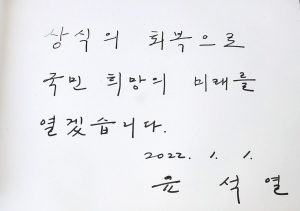 상식의 회복으로
국민 희망의 미래를
열겠습니다.
2022. 1. 1.
윤석열